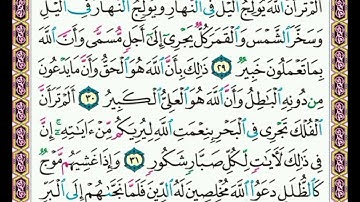 أَلَمْ تَرَ أَنَّ ٱللَّهَ يُولِجُ ٱلَّيْلَ فِى ٱلنَّهَارِ وَيُولِجُ ٱلنَّهَارَ فِى ٱلَّيْلِ
وَسَخَّرَ ٱلشَّمْسَ وَٱلْقَمَرَ كُلٌّ يَجْرِىٓ إِلَىٰٓ أَجَلٍ مُّسَمًّى وَأَنَّ ٱللَّهَ
بِمَا تَعْمَلُونَ خَبِيرٌ ٢٩ ذَٰلِكَ بِأَنَّ ٱللَّهَ هُوَ ٱلْحَقُّ وَأَنَّ مَا يَدْعُونَ
مِن دُونِهِ ٱلْبَٰطِلُ وَأَنَّ ٱللَّهَ هُوَ ٱلْعَلِىُّ ٱلْكَبِيرُ ٣٠ أَلَمْ تَرَ أَنَّ
ٱلْفُلْكَ تَجْرِى فِى ٱلْبَحْرِ بِنِعْمَتِ ٱللَّهِ لِيُرِيَكُم مِّنْ ءَايَٰتِهِۦٓ إِنَّ
فِى ذَٰلِكَ لَءَايَٰتٍ لِّكُلِّ صَبَّارٍ شَكُورٍ ٣١ وَإِذَا غَشِيَهُم مَّوْجٌ
كَٱلظُّلَلِ دَعَوُا۟ ٱللَّهَ مُخْلِصِينَ لَهُ ٱلدِّينَ فَلَمَّا نَجَّىٰهُمْ إِلَى ٱلْبَرِّ